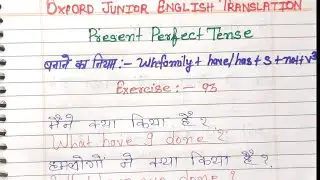 OXFORD JUNIOR ENGLISH TRANSLATION
Present Perfect Tense
बनाने का नियम :- Wh family + have/has + S + not + v³
Exercise :- 93
मैंने क्या किया है ?
What have I done ?
हमलोगों ने क्या किया है ?
done ?